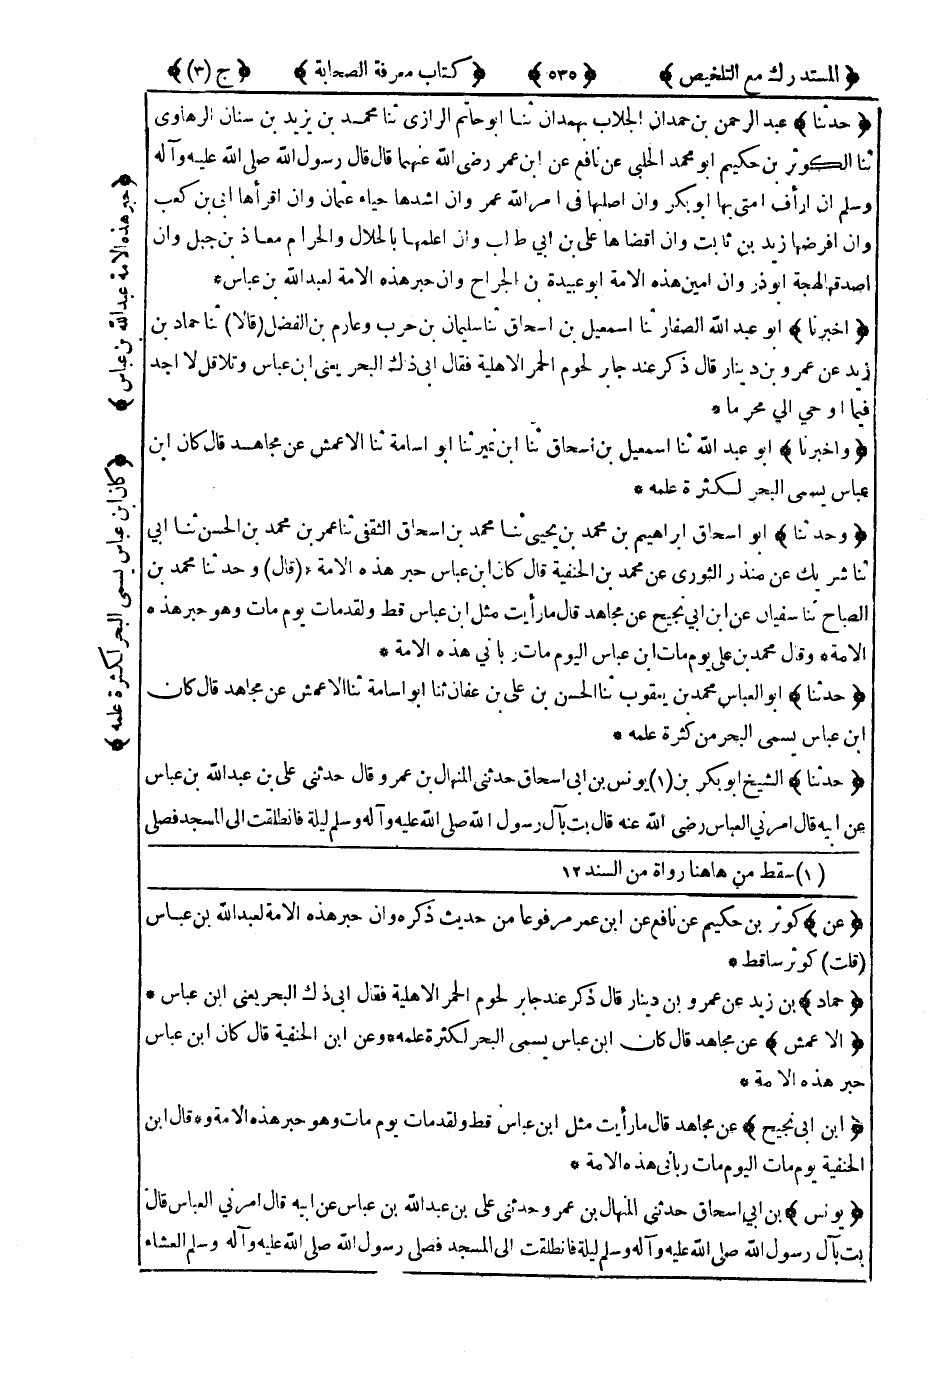 ﴿ المستدرك مع التلخيص ﴾ ﴿ ٥٣٥ ﴾ ﴿ كتاب معرفة الصحابة ﴾ ﴿ ج (٣) ﴾
﴿ حدثنا ﴾ عبد الرحمن بن حمدان الجلاب بهمدان ثنا ابو حاتم الرازى ثنا محمد بن يزيد بن سنان الرهاوى
ثنا الكوثر بن حكيم ابو محمد الحلبي عن نافع عن ابن عمر رضى الله عنهما قال قال رسول الله صلى الله عليه وآله
وسلم ان ارأف امتى بها ابوبكر وان اصلبها فى امر الله عمر وان اشدها حياء عثمان وان اقرأها ابى بن كعب
وان افرضها زيد بن ثابت وان اقضاها على بن ابي طالب وان اعلمها بالحلال والحرام معاذ بن جبل وان
اصدقها لهجة ابوذر وان امين هذه الامة ابو عبيدة بن الجراح وان حبر هذه الامة لعبد الله بن عباس*
﴿ اخبرنا ﴾ ابو عبد الله الصفار ثنا اسمعيل بن اسحاق ثنا سليمان بن حرب وعارم بن الفضل (قالا) ثنا حماد بن
زيد عن عمرو بن دينار قال ذكر عند جابر لحوم الحمر الاهلية فقال ابى ذاك البحر يعنى ابن عباس وتلا قل لا اجد
فيما اوحي الي محرما *
﴿ واخبرنا ﴾ ابو عبد الله ثنا اسمعيل بن اسحاق ثنا ابن نمير ثنا ابو اسامة ثنا الاعمش عن مجاهد قال كان ابن
عباس يسمى البحر لكثرة علمه *
﴿ وحدثنا ﴾ ابو اسحاق ابراهيم بن محمد بن يحيى ثنا محمد بن اسحاق الثقفى ثنا عمر بن محمد بن الحسن ثنا ابي
ثنا شريك عن منذر الثورى عن محمد بن الحنفية قال كان ابن عباس حبر هذه الامة * (قال) وحدثنا محمد بن
الصباح ثنا سفيان عن ابن ابي نجيح عن مجاهد قال ما رأيت مثل ابن عباس قط ولقد مات يوم مات وهو حبر هذه
الامة* وقال محمد بن على يوم مات ابن عباس اليوم مات ربانى هذه الامة *
﴿ حدثنا ﴾ ابو العباس محمد بن يعقوب ثنا الحسن بن على بن عفان ثنا ابو اسامة ثنا الاعمش عن مجاهد قال كان
ابن عباس يسمى البحر من كثرة علمه *
﴿ حدثنا ﴾ الشيخ ابو بكر بن (١) يونس بن ابى اسحاق حدثنى المنهال بن عمرو قال حدثنى على بن عبد الله بن عباس
عن ابيه قال امرني العباس رضى الله عنه قال بت بآل رسول الله صلى الله عليه وآله وسلم ليلة فانطلقت الى المسجد فصلى
(١) سقط من هاهنا رواة من السند ١٢
﴿ عن ﴾ كوثر بن حكيم عن نافع عن ابن عمر مرفوعا من حديث ذكره وان حبر هذه الامة لعبد الله بن عباس
(قلت) كوثر ساقط *
﴿ حماد ﴾ بن زيد عن عمرو بن دينار قال ذكر عند جابر لحوم الحمر الاهلية فقال ابى ذلك البحر يعنى ابن عباس *
﴿ الاعمش ﴾ عن مجاهد قال كان ابن عباس يسمى البحر لكثرة علمه* وعن ابن الحنفية قال كان ابن عباس
حبر هذه الامة *
﴿ ابن ابى نجيح ﴾ عن مجاهد قال ما رأيت مثل ابن عباس قط ولقد مات يوم مات وهو حبر هذه الامة و* قال ابن
الحنفية يوم مات اليوم مات ربانى هذه الامة *
﴿ يونس ﴾ بن ابي اسحاق حدثنى المنهال بن عمر وحدثنى على بن عبد الله بن عباس عن ابيه قال امرني العباس قال
بت بآل رسول الله صلى الله عليه وآله وسلم ليلة فانطلقت الى المسجد فصلى رسول الله صلى الله عليه وآله وسلم العشاء
﴿ حبر هذه الامة عبد الله بن عباس ﴾
﴿ كان ابن عباس يسمى البحر لكثرة علمه ﴾